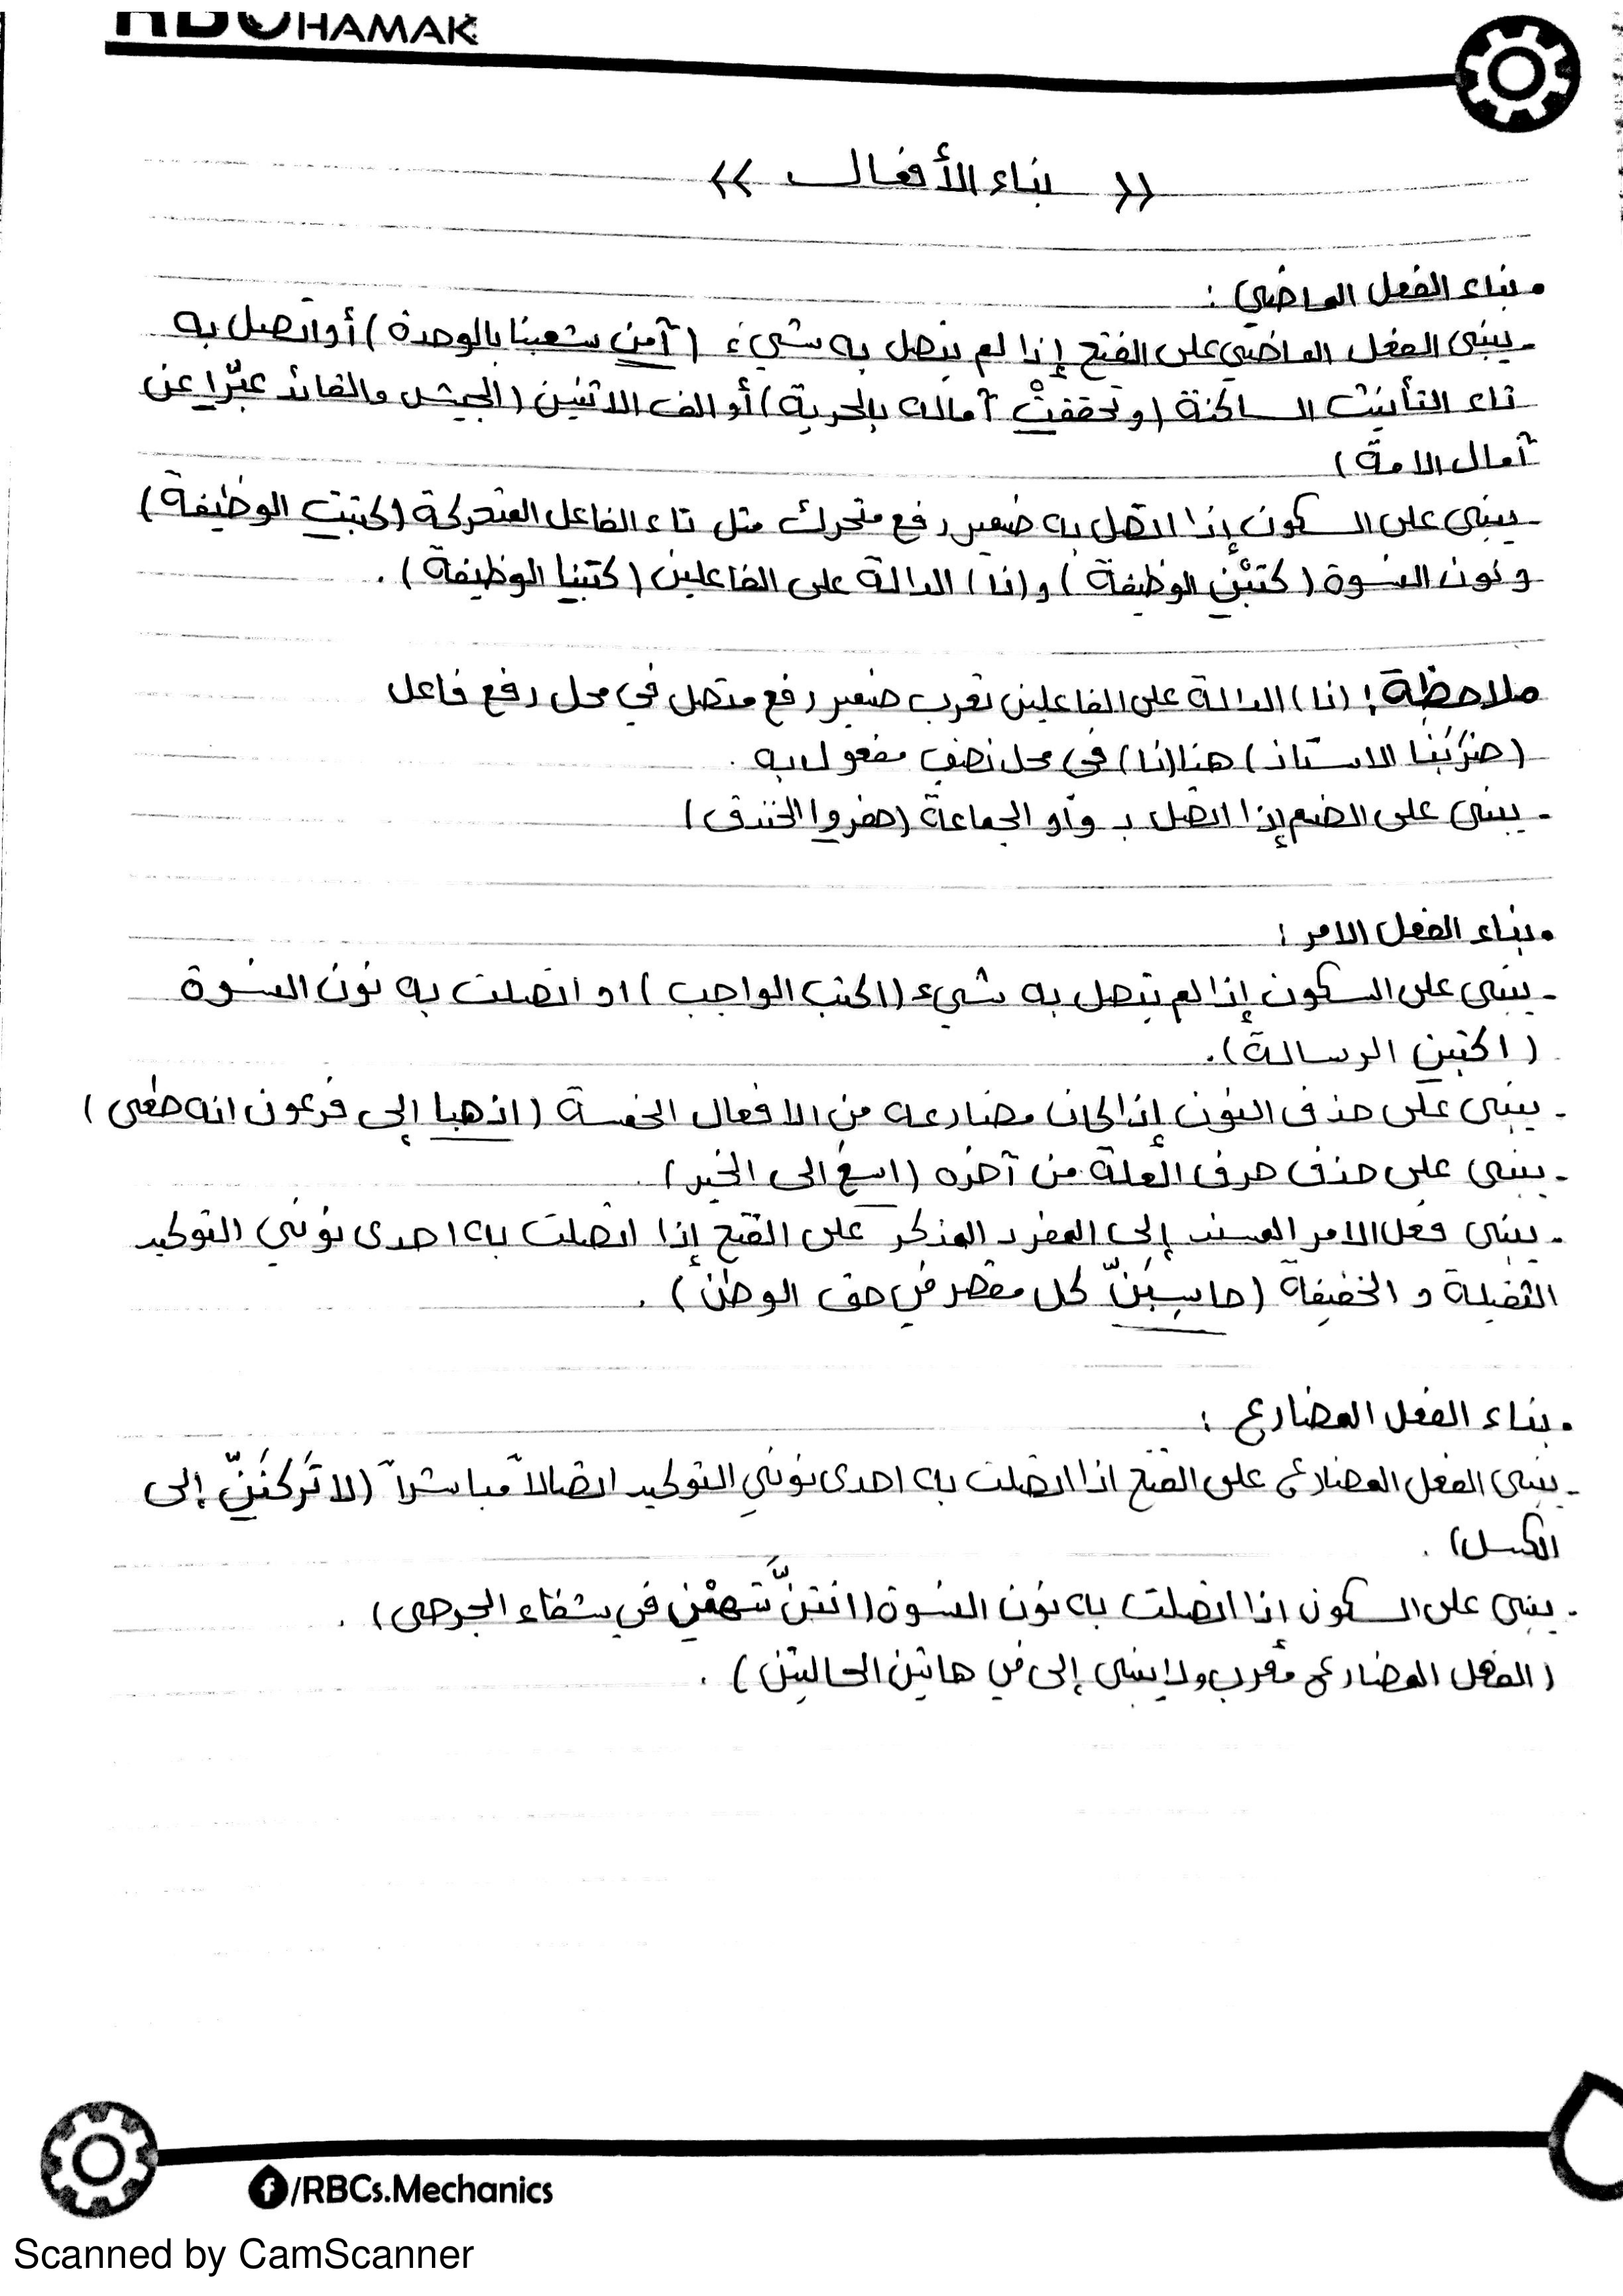 HAMAK
(( بناء الأفعال ))
• بناء الفعل الماضي :
- يبنى الفعل الماضي على الفتح إذا لم يتصل به شيء (آمن شعبنا بالوحدة) أو اتصل به
تاء التأنيث الساكنة (وتحققتْ آماله بالحرية) أو الف الاثنين (الجيش والقائد عبّرا عن
آمال الامة)
- يبنى على السكون إذا اتصل به ضمير رفع متحرك مثل تاء الفاعل المتحركة (كتبت الوظيفة)
ونون النسوة (كتبْن الوظيفة) و(نا) الدالة على الفاعلين (كتبنا الوظيفة).
ملاحظة: (نا) الدالة على الفاعلين تعرب ضمير رفع متصل في محل رفع فاعل
(ضَرَبَنا الاستاذ) هنا (نا) في محل نصب مفعول به.
- يبنى على الضم إذا اتصل بـ واو الجماعة (حفروا الخندق)
• بناء الفعل الامر :
- يبنى على السكون إذا لم يتصل به شيء (اكتب الواجب) او اتصلت به نون النسوة
(اكتبن الرسالة).
- يبنى على حذف النون إذا كان مضارعه من الافعال الخمسة (اذهبا إلى فرعون انه طغى)
- يبنى على حذف حرف العلة من آخره (اسعَ الى الخير)
- يبنى فعل الامر المسند إلى المفرد المذكر على الفتح إذا اتصلت به احدى نوني التوكيد
الثقيلة و الخفيفة (حاسِبَنّ كل مقصر في حق الوطن).
• بناء الفعل المضارع :
- يبنى الفعل المضارع على الفتح اذا اتصلت به احدى نوني التوكيد اتصالاً مباشراً (لا تَركَنَنّ إلى
الكسل).
- يبنى على السكون اذا اتصلت به نون النسوة (انتنَّ تسهمْن في شفاء الجرحى).
(الفعل المضارع معرب ولا يبنى إلى في هاتين الحاليتن).
/RBCs.Mechanics
Scanned by CamScanner